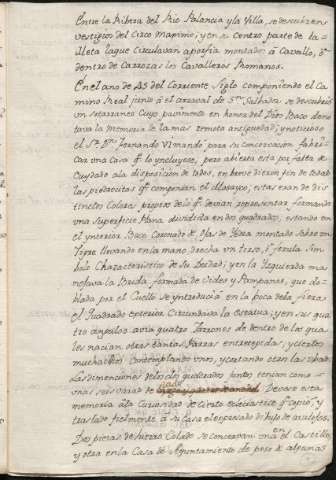 Entre la Ribera del Rio Palancia y la Villa, se descubren
vestigios del Circo Maximo; y en su Centro, parte de la
lleta laque circulavan aporfia montados à Cavallo, ò
dentro de Carrozas los Cavalleros Romanos.
En el ano de 45 del Corriente Siglo componiendo el Ca
mino Real junto à el arraval de Sn Salvador se descubrio
un soterraneo Cuyo pavimento en honor del Dios Baco deno
tava la memoria de la mas remota antiguedad; y noticioso
el Sr. Dn. Fernando VI mandò para su conservacion fabri-
car una Casa qe lo yncluyese, pero abierta esta por falta de
Cuydado ala disposicion de todos, en breve dieron fin de todas
las piedrecitas qe componian el Mosayco, estas eran de dis
tinctos Colores propios delo qe devian representar, formando
una Superficie plana dividida en dos quadrados, estando en
el ynterior Baco Coronado de ojas de Yedra montado sobre un
Tigre llevando en la mano drecha un tirso, ò ferula Sim
bolo Characteristico de su Deidad; y en la Yzquierda ma
nejava la Brida, formada de Vides y Pampanos, que do-
blada por el Cuello se yntroducia en la boca dela fiera:
el Quadrado exterior Circundava la Estatua; y en sus qua
tro angulos avia quatro Jarrones de dentro de los qua
les nacian otras tantas Parras entretegidas, y ciertos
muchachos Contemplando unos, y cortando otros las ubas.
Las dimenciones delos dos quadrados juntos tenian como
unas seis varas de
De oose esta
memoria àla Curiosidad de Cierto eclesiastico qe copiò, y
traslado fielmente à su Casa el expresado dibujo de azulejos.
Dos piezas de fuerro Colado se conservan una en el Castillo,
y otra en la Casa de Ayuntamiento de peso de algunas